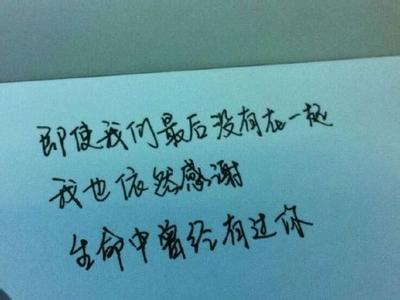 即使我们最后没有在一起
我也依然感谢
生命中曾经有过你